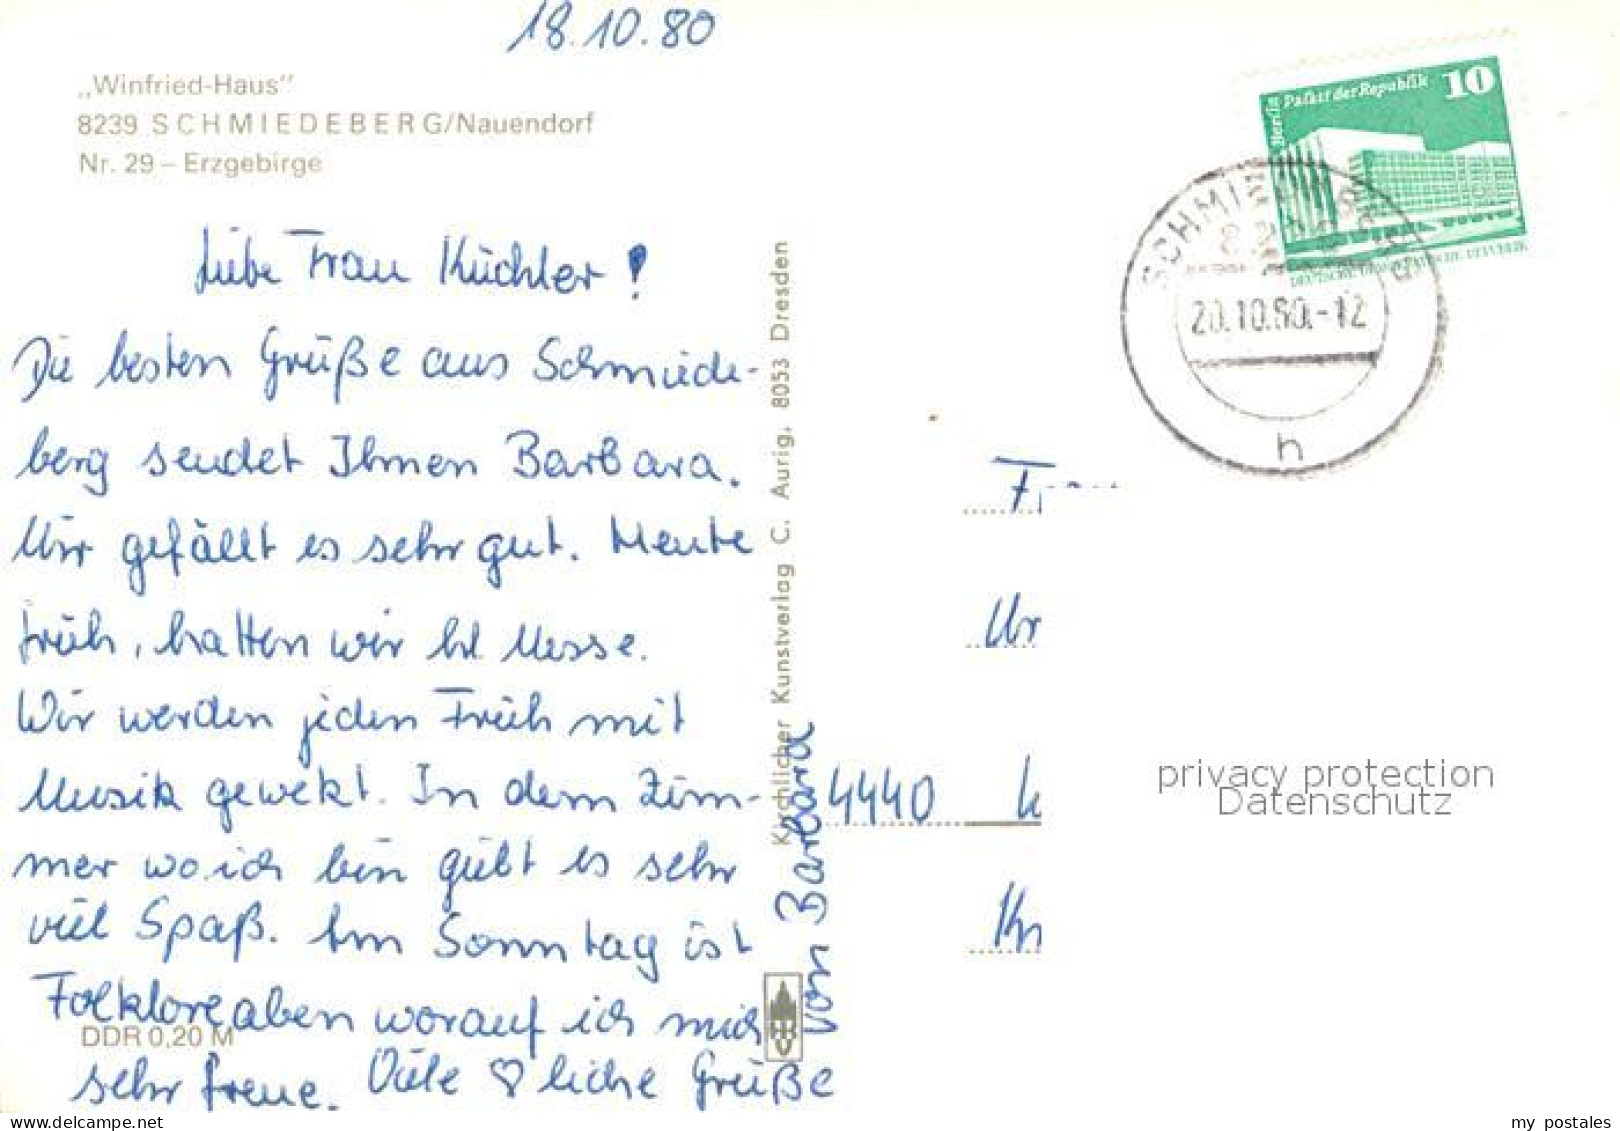 18.10.80
„Winfried-Haus"
8239 SCHMIEDEBERG/Nauendorf
Nr. 29 – Erzgebirge
Liebe Frau Küchler!
Die besten Grüße aus Schmiede-
berg sendet Ihnen Barbara.
Mir gefällt es sehr gut. Heute
früh, hatten wir hl. Messe.
Wir werden jeden Früh mit
Musik gewekt. In dem Zim-
mer wo ich bin giebt es sehr
viel Spaß. Am Sonntag ist
Folkloreaben worauf ich mich
sehr freue. Viele ♡ liche Grüße
von Barbara
DDR 0,20 M
Kirchlicher Kunstverlag C. Aurig, 8053 Dresden
Berlin
Palast der Republik
10
DEUTSCHE DEMOKRATISCHE REPUBLIK
SCHMIEDEBERG
20.10.80.-12
h
Frau
4440
privacy protection
Datenschutz
www.delcampe.net
my_postales